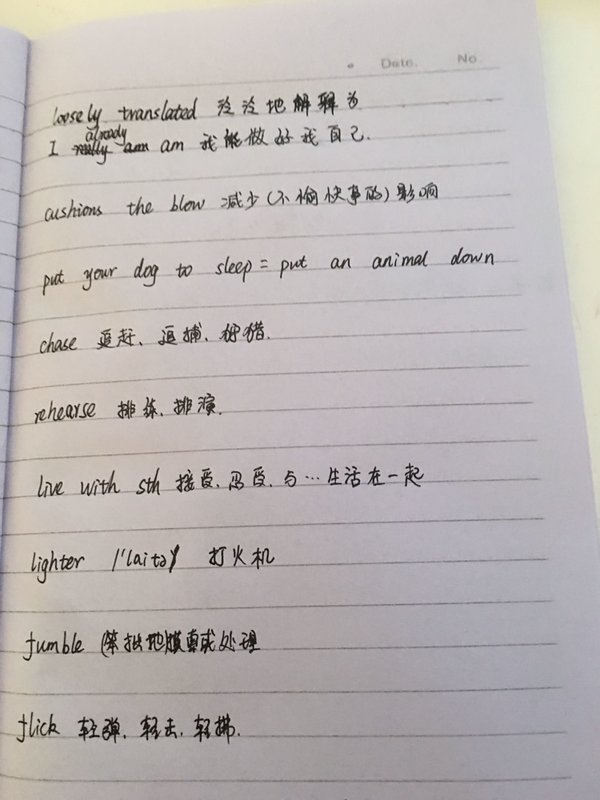 Date. No
loosely translated 泛泛地解释为
already
I really am am 我能做好我自己.
cushions the blow 减少(不愉快事的)影响
put your dog to sleep = put an animal down
chase 追赶、追捕、狩猎.
rehearse 排练、排演.
live with sth 接受、忍受、与…生活在一起
lighter /'laitə/ 打火机
fumble (笨拙地)摸索或处理
flick 轻弹、轻击、轻拂.